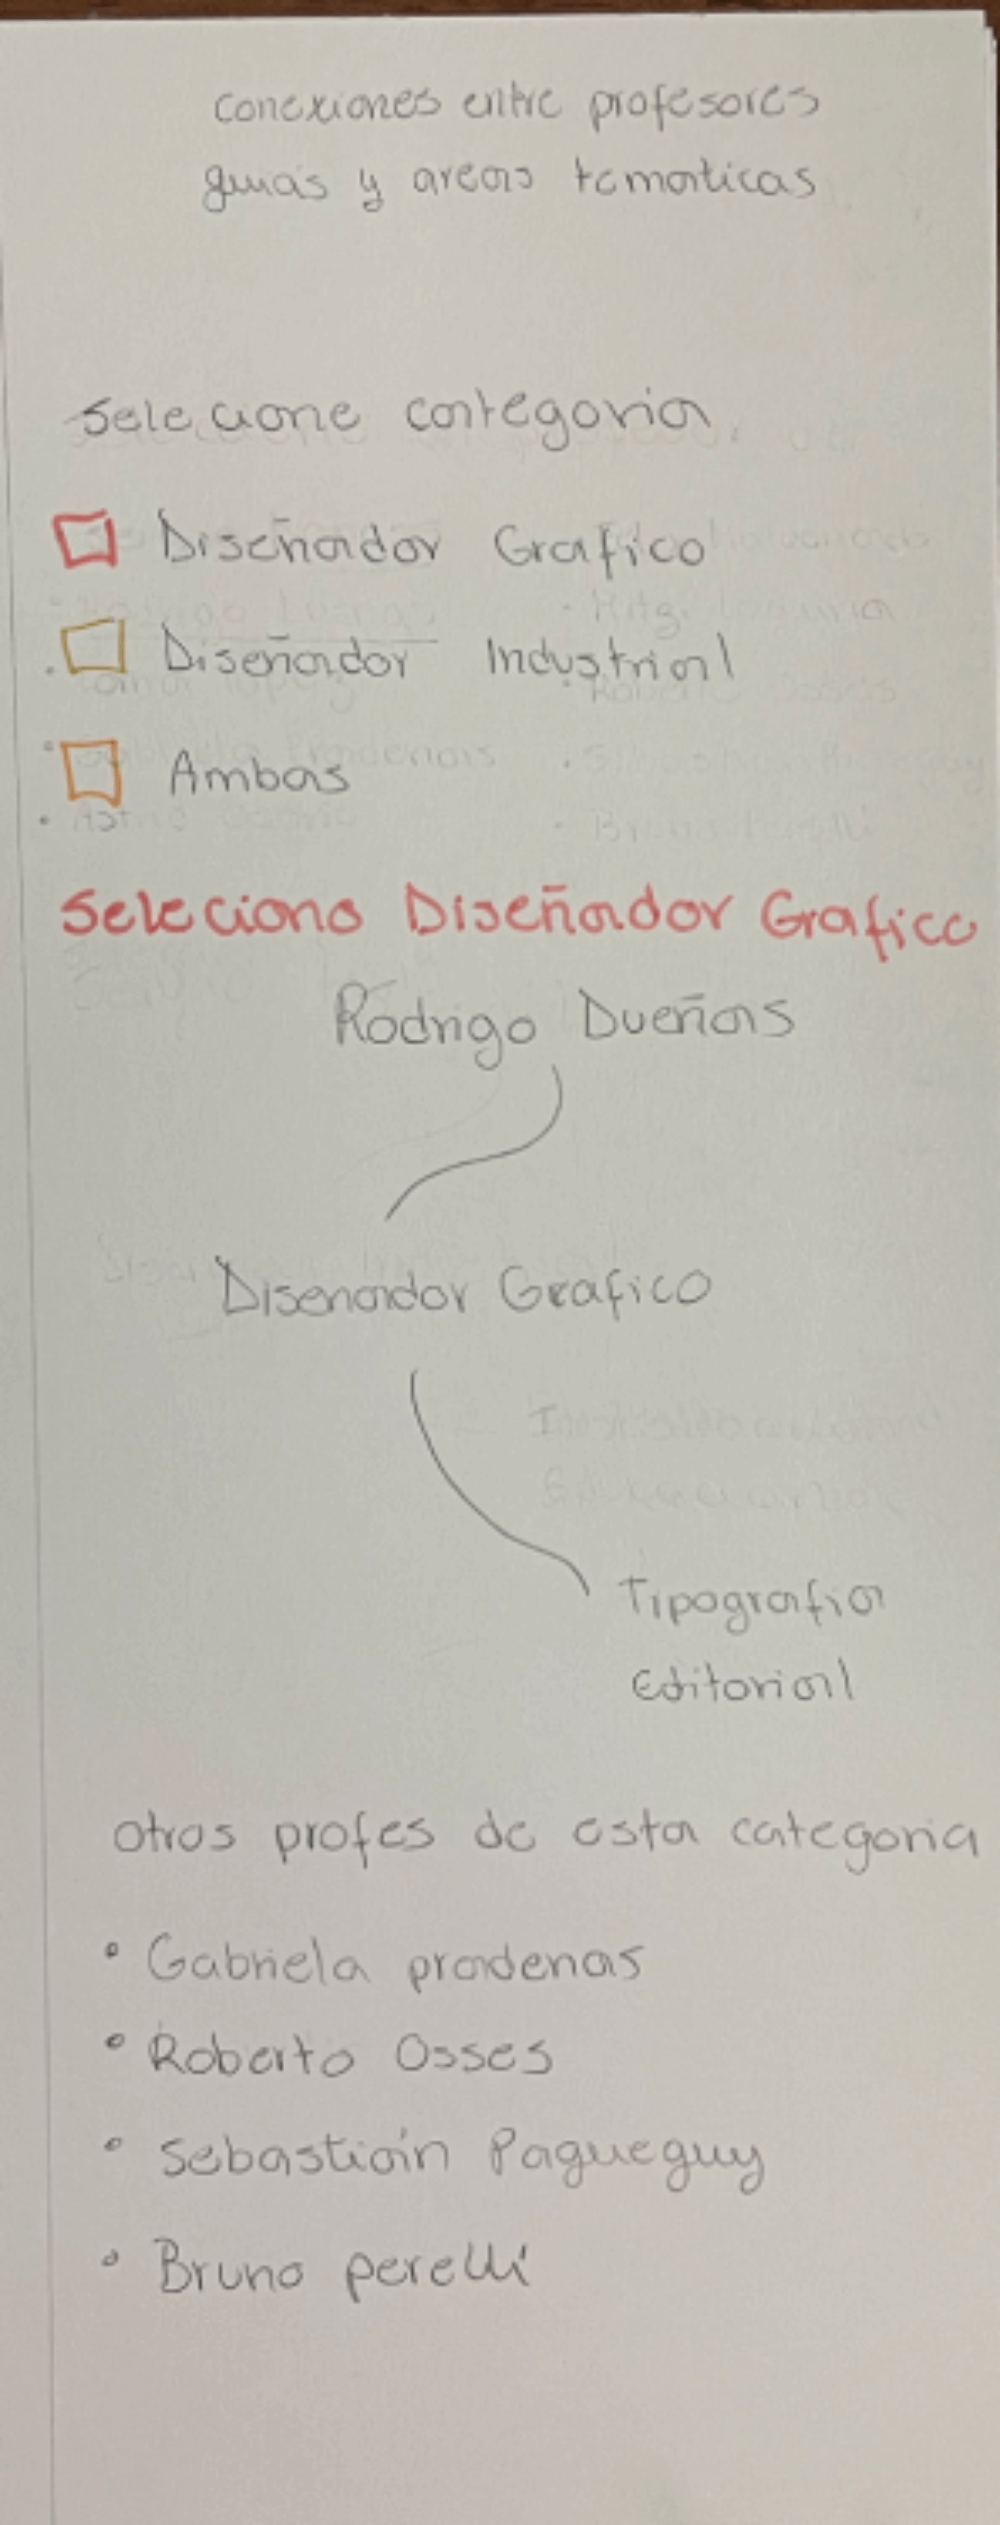 conexiones entre profesores
guias y areas tematicas
Selecione categoria
Diseñador Grafico
Diseñador Industrial
Ambas
Seleciono Diseñador Grafico
Rodrigo Dueñas
Disenador Grafico
Tipografia
Editorial
otros profes de esta categoria
• Gabriela pradenas
• Roberto Osses
• Sebastián Pagueguy
• Bruno perelli